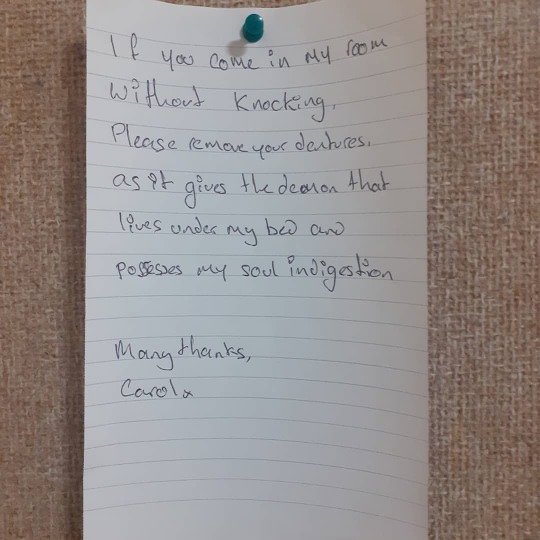 If you come in my room
Without Knocking,
Please remove your dentures.
as it gives the demon that
lives under my bed and
possesses my soul indigestion
Many thanks,
Carol x